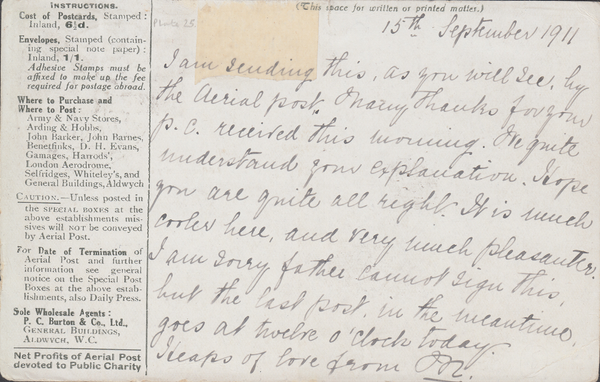 INSTRUCTIONS.
Cost of Postcards, Stamped :
Inland, 6½d.
Envelopes, Stamped (contain-
ing special note paper) :
Inland, 1/1.
Adhesive Stamps must be
affixed to make up the fee
required for postage abroad.
Where to Purchase and
Where to Post :
Army & Navy Stores,
Arding & Hobbs,
John Barker, John Barnes,
Benetfinks, D. H. Evans,
Gamages, Harrods',
London Aerodrome,
Selfridges, Whiteley's, and
General Buildings, Aldwych
CAUTION.—Unless posted in
the SPECIAL BOXES at the
above establishments mis-
sives will NOT be conveyed
by Aerial Post.
For Date of Termination of
Aerial Post and further
information see general
notice on the Special Post
Boxes at the above estab-
lishments, also Daily Press.
Sole Wholesale Agents :
P. C. Burton & Co., Ltd.,
GENERAL BUILDINGS,
ALDWYCH, W.C.
Net Profits of Aerial Post
devoted to Public Charity
(This space for written or printed matter.)
Plate 25
15th September 1911
I am sending this, as you will see, by
the Aerial post. Many thanks for your
p.c. received this morning. We quite
understand your explanation. Hope
you are quite all right. It is much
cooler here, and very much pleasanter.
I am sorry father cannot sign this,
but the last post, in the meantime,
goes at twelve o'clock today.
Heaps of love from M.